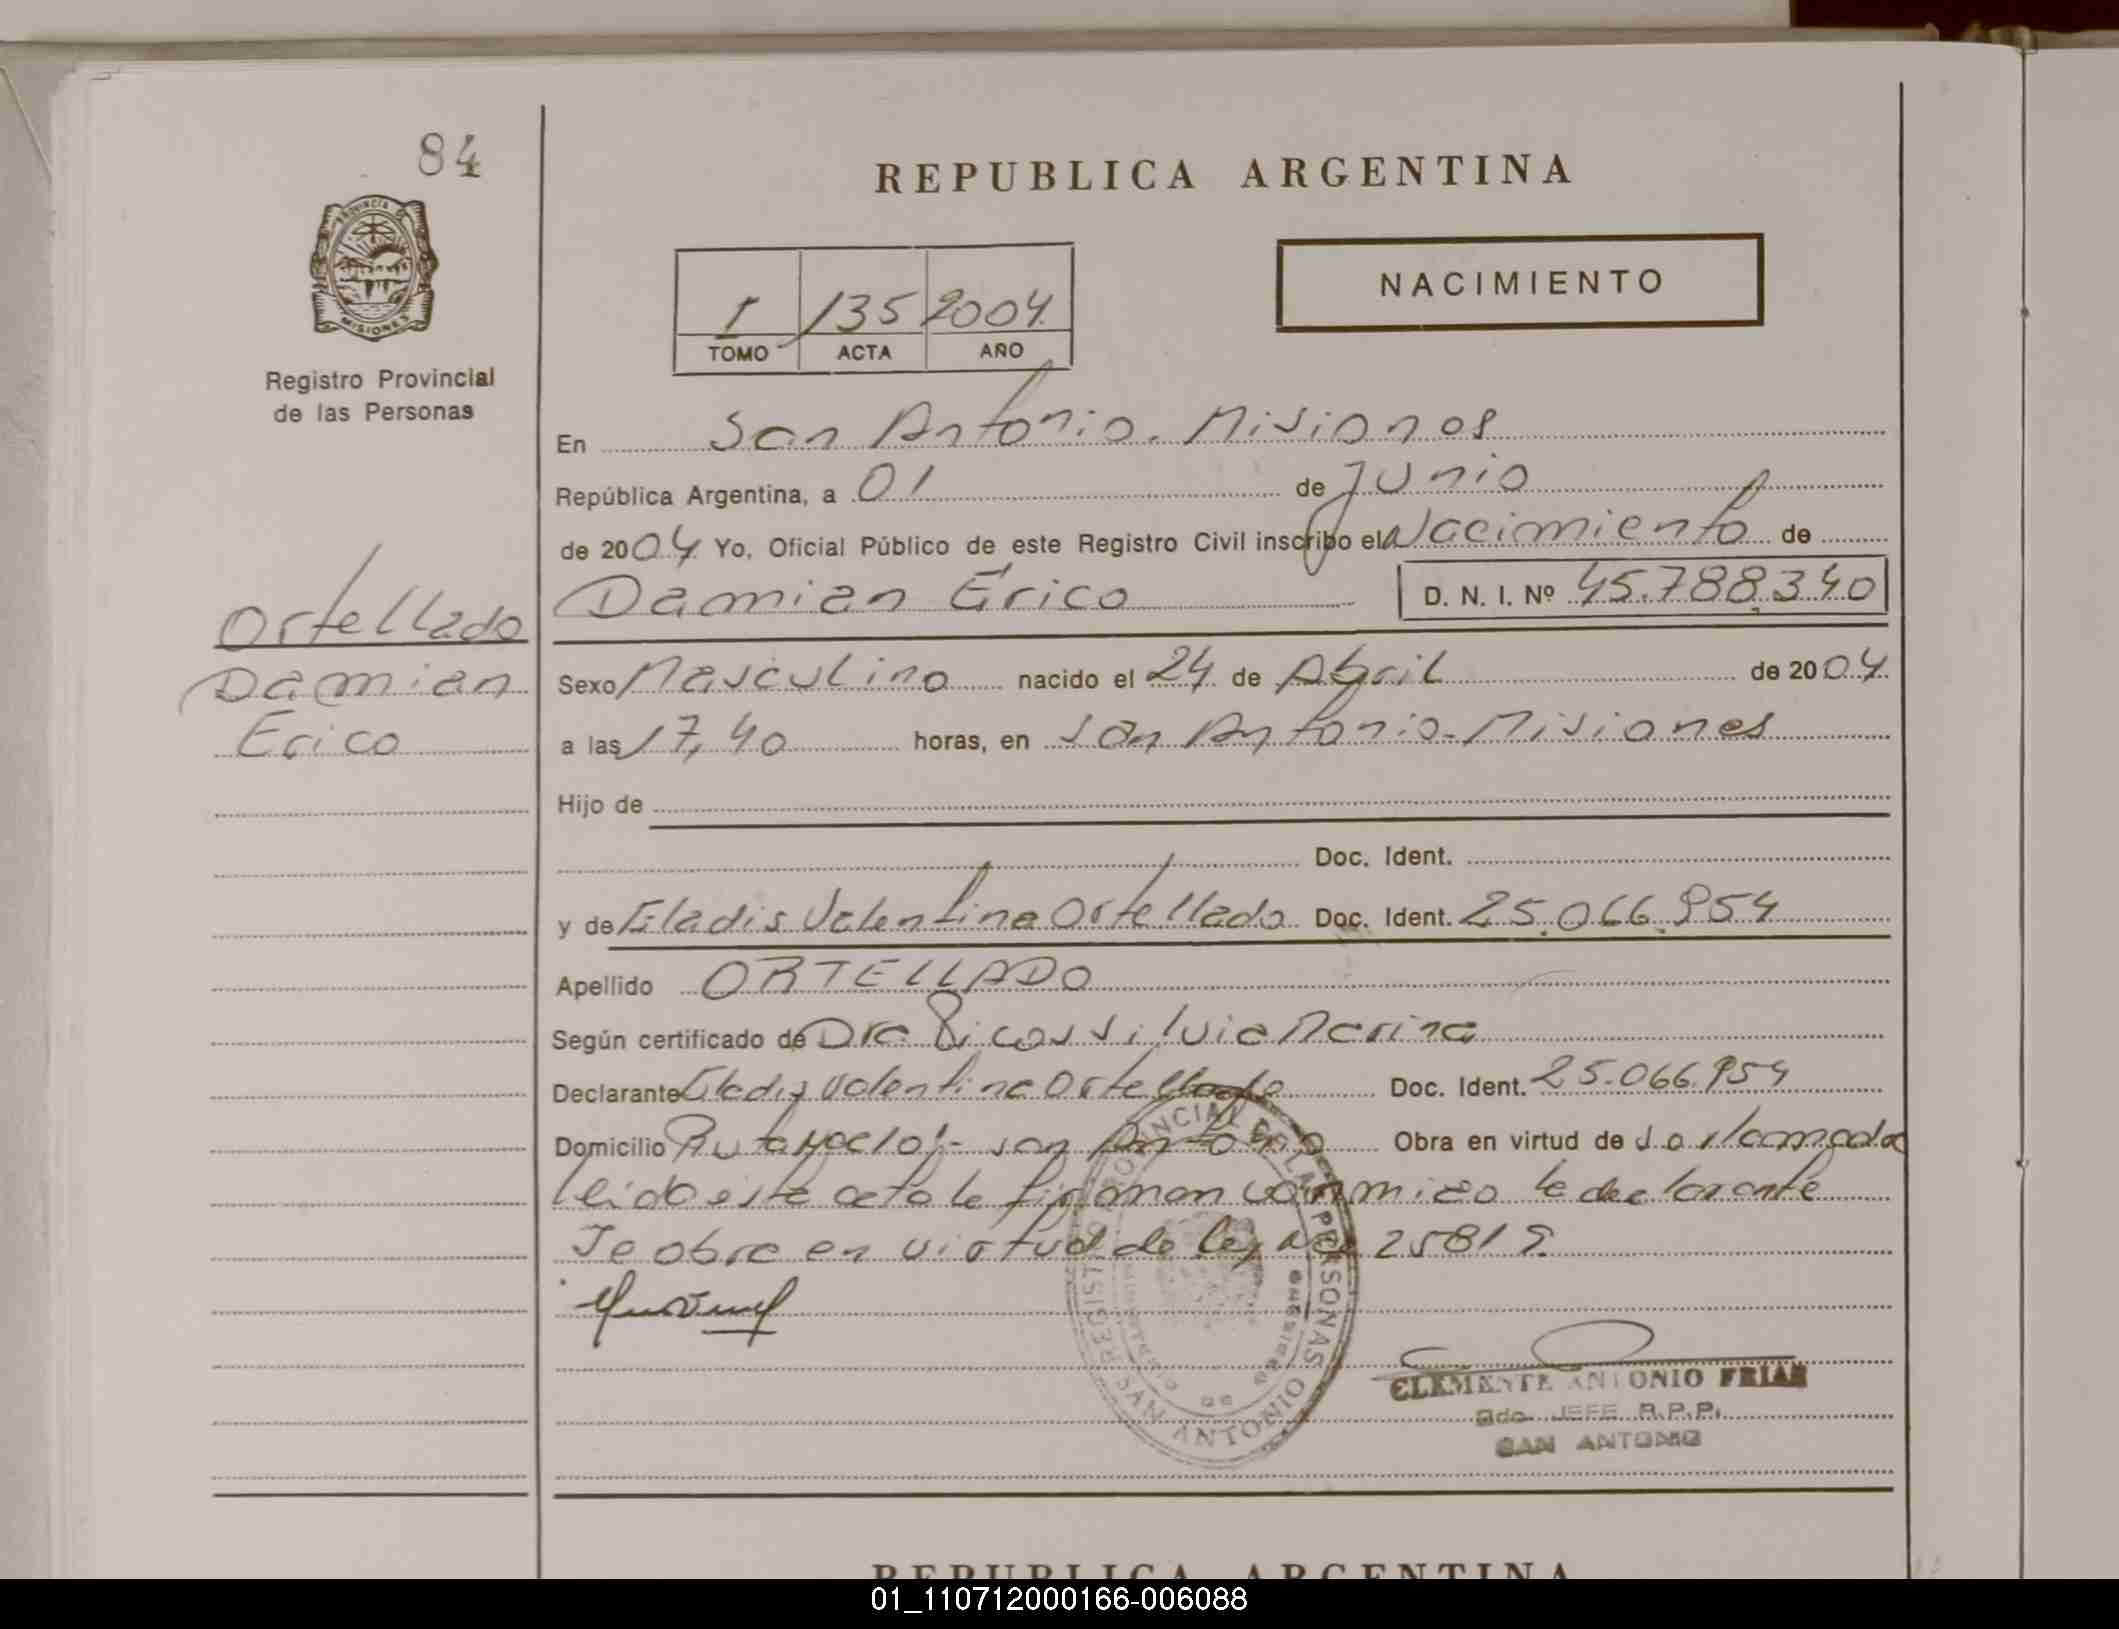 84
REPUBLICA ARGENTINA
PROVINCIA DE
MISIONES
I 135 2004
TOMO ACTA AÑO
NACIMIENTO
Registro Provincial
de las Personas
En San Antonio. Misiones
República Argentina, a 01 de Junio
de 2004 Yo, Oficial Público de este Registro Civil inscribo el Nacimiento de
Damian Erico D. N. I. Nº 45.788.340
Ortellado
Damian
Erico
Sexo Masculino nacido el 24 de Abril de 2004
a las 17,40 horas, en San Antonio-Misiones
Hijo de
Doc. Ident.
y de Gladis Valentina Ortellado Doc. Ident. 25.066.954
Apellido ORTELLADO
Según certificado de Dra Silvia Marina
Declarante Gladis Valentina Ortellado Doc. Ident. 25.066.954
Domicilio Ruta - San Antonio Obra en virtud de
leido este acta la firman conmigo la declarante
Se obra en virtud de ley 25819.
REGISTRO PROVINCIAL DE LAS PERSONAS
SAN ANTONIO
CLEMENTE ANTONIO FRIAS
JEFE R.P.P.
SAN ANTONIO
REPUBLICA ARGENTINA
01_110712000166-006088